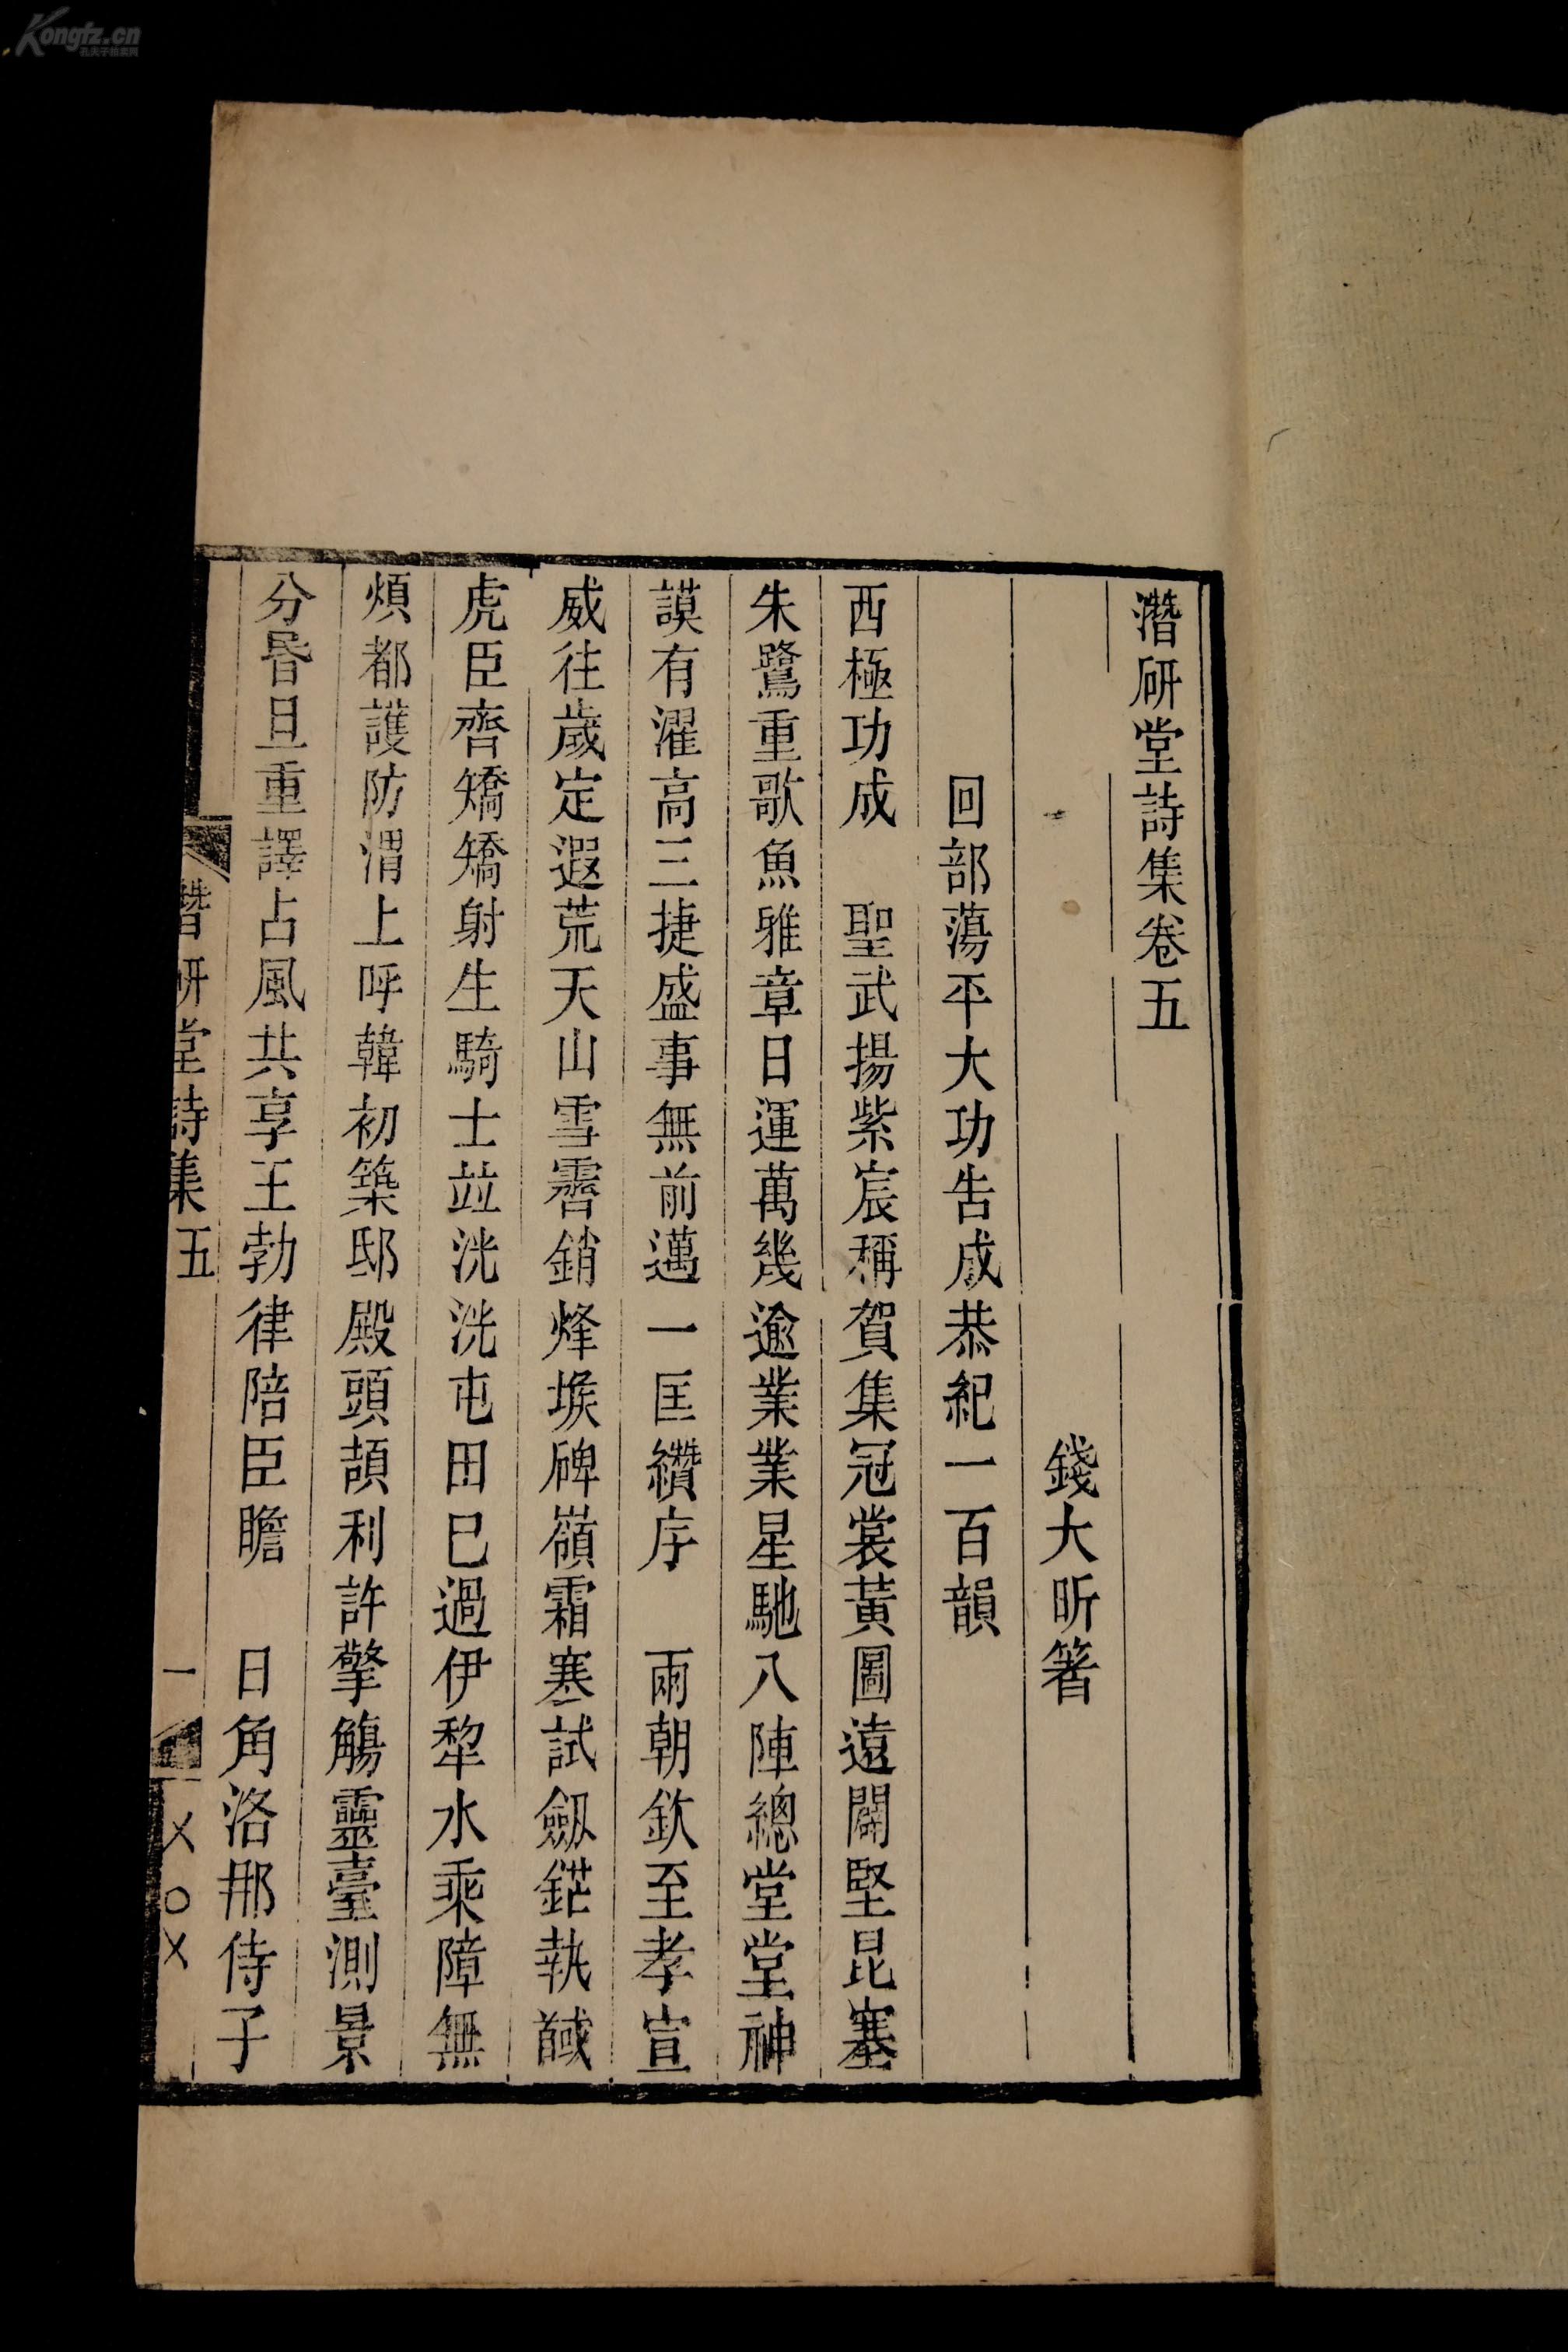 潛研堂詩集卷五
錢大昕箸
回部蕩平大功告成恭紀一百韻
西極功成　聖武揚紫宸稱賀集冠裳黃圖遠闢堅昆塞
朱鷺重歌魚雅章日運萬幾逾業業星馳八陣總堂堂神
謨有濯高三捷盛事無前邁一匡纘序　兩朝欽至孝宣
威往歲定遐荒天山雪霽銷烽堠碑嶺霜寒試劒鋩執馘
虎臣齊矯矯射生騎士竝洸洸屯田已過伊犂水乘障無
煩都護防渭上呼韓初築邸殿頭頡利許擎觴靈臺測景
分晷旦重譯占風共享王勃律陪臣瞻　日角洛那侍子
潛研堂詩集五
一
乂〇乂
Kongfz.cn
孔夫子拍卖网